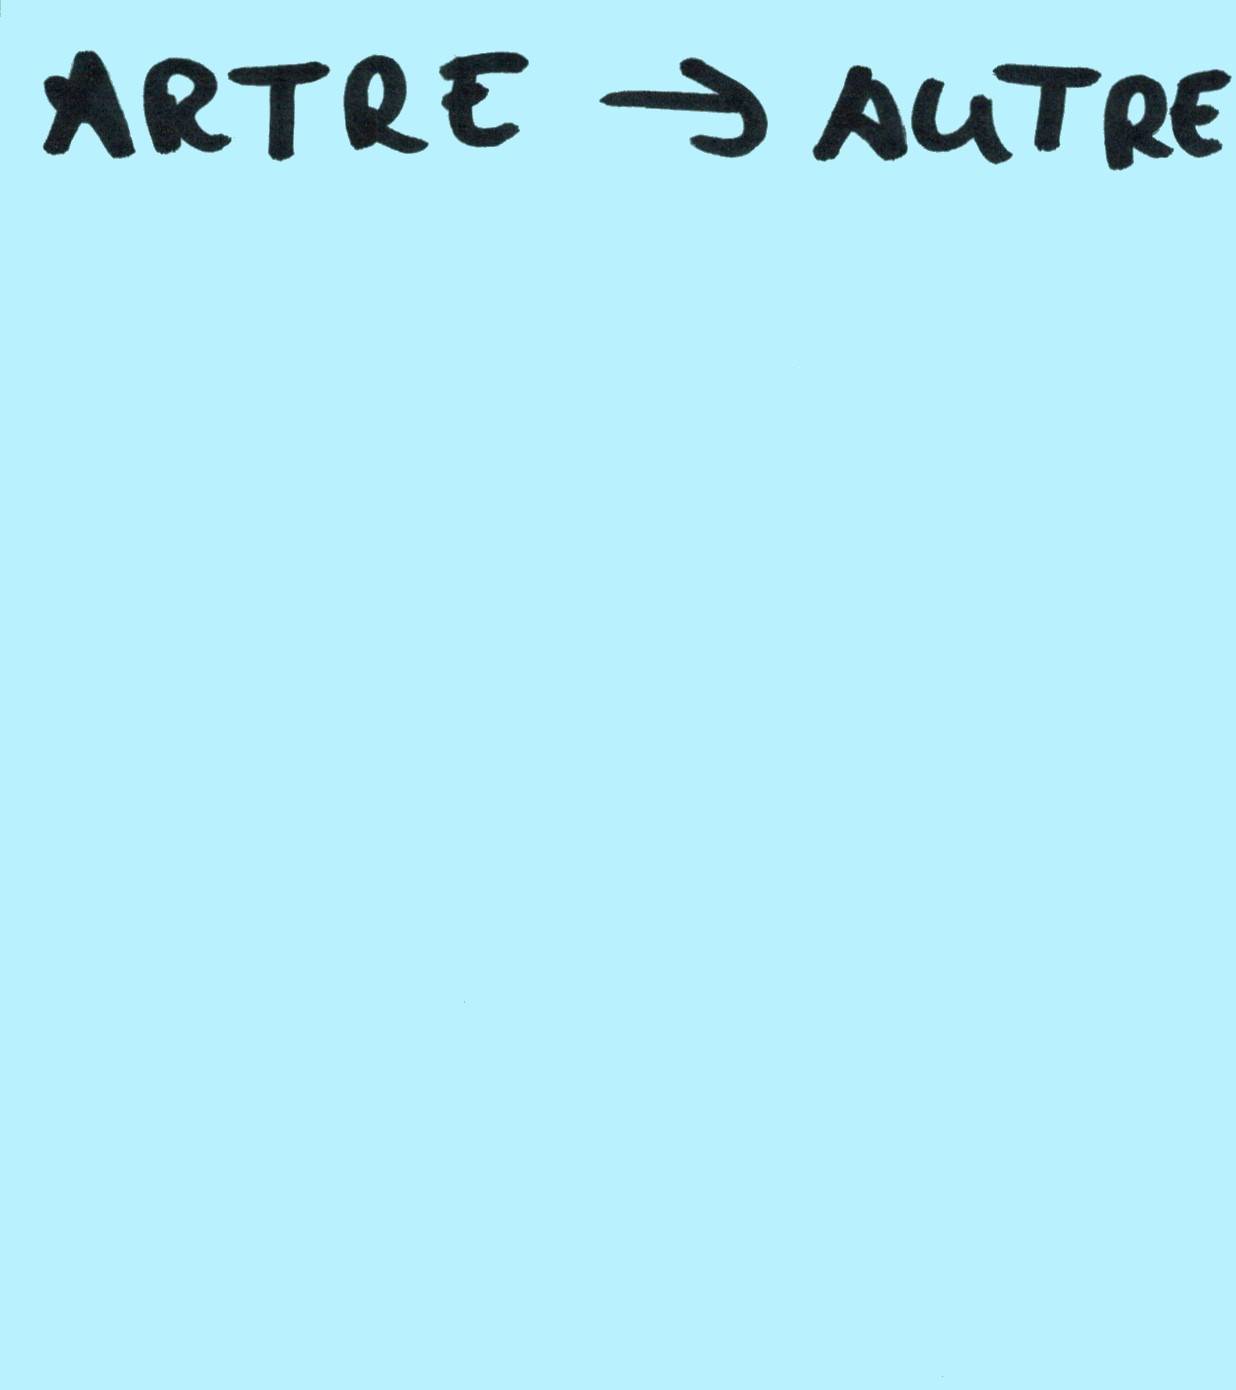 ARTRE → AUTRE